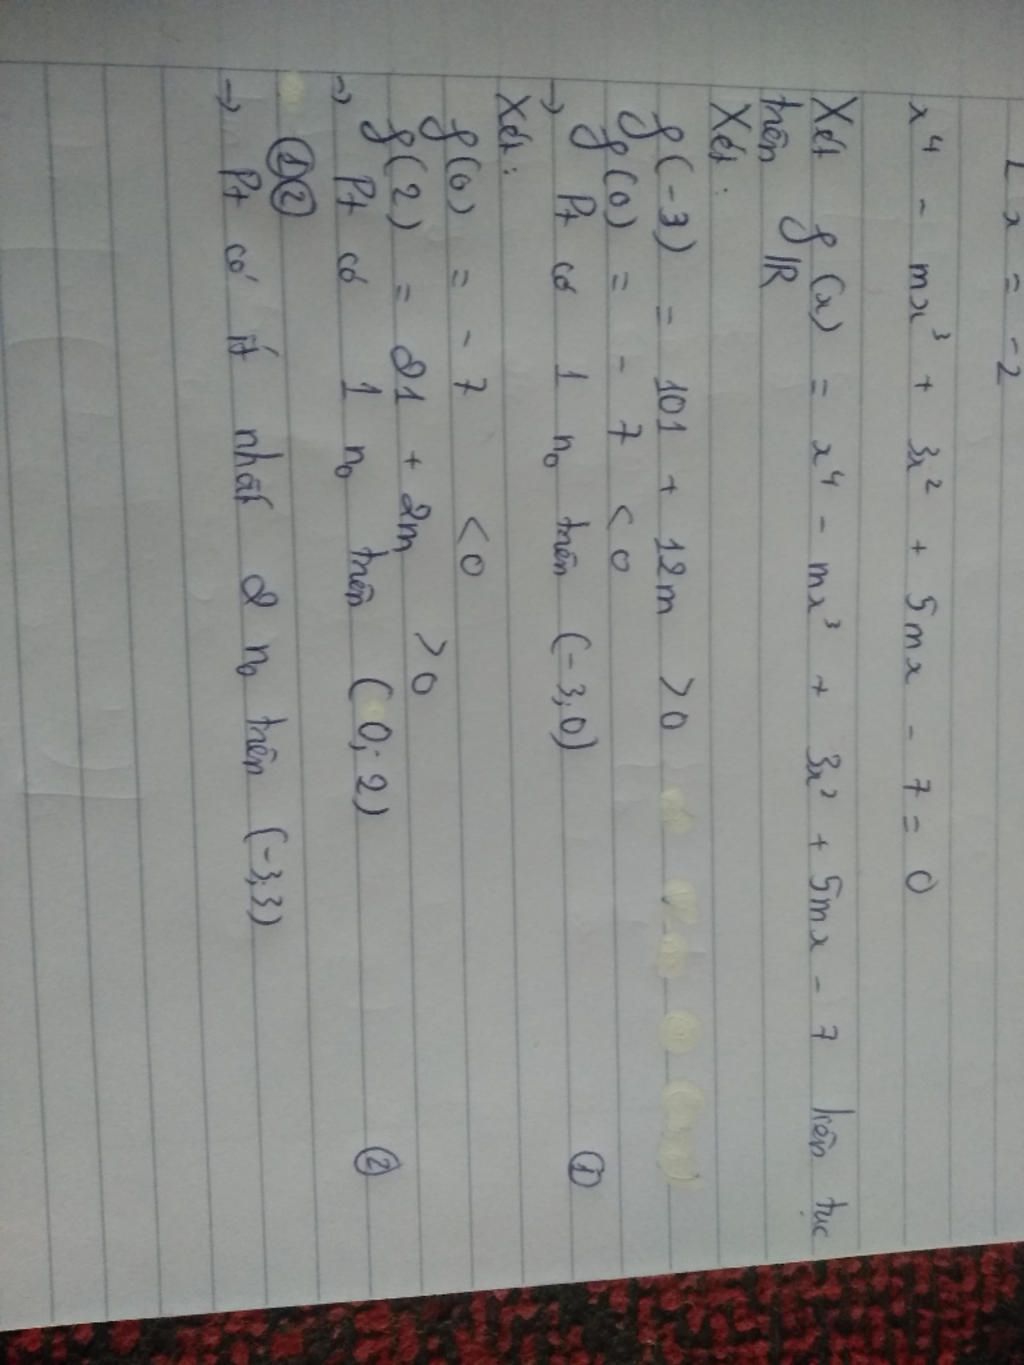 [ x = -2
x⁴ - mx³ + 3x² + 5mx - 7 = 0
Xét f(x) = x⁴ - mx³ + 3x² + 5mx - 7 liên tục
trên ℝ
Xét:
f(-3) = 101 + 12m > 0
f(0) = - 7 < 0
→ Pt có 1 n₀ trên (-3; 0) ①
Xét:
f(0) = - 7 < 0
f(2) = 21 + 2m > 0
→ Pt có 1 n₀ trên (0; 2) ②
①②
→ Pt có ít nhất 2 n₀ trên (-3; 3)